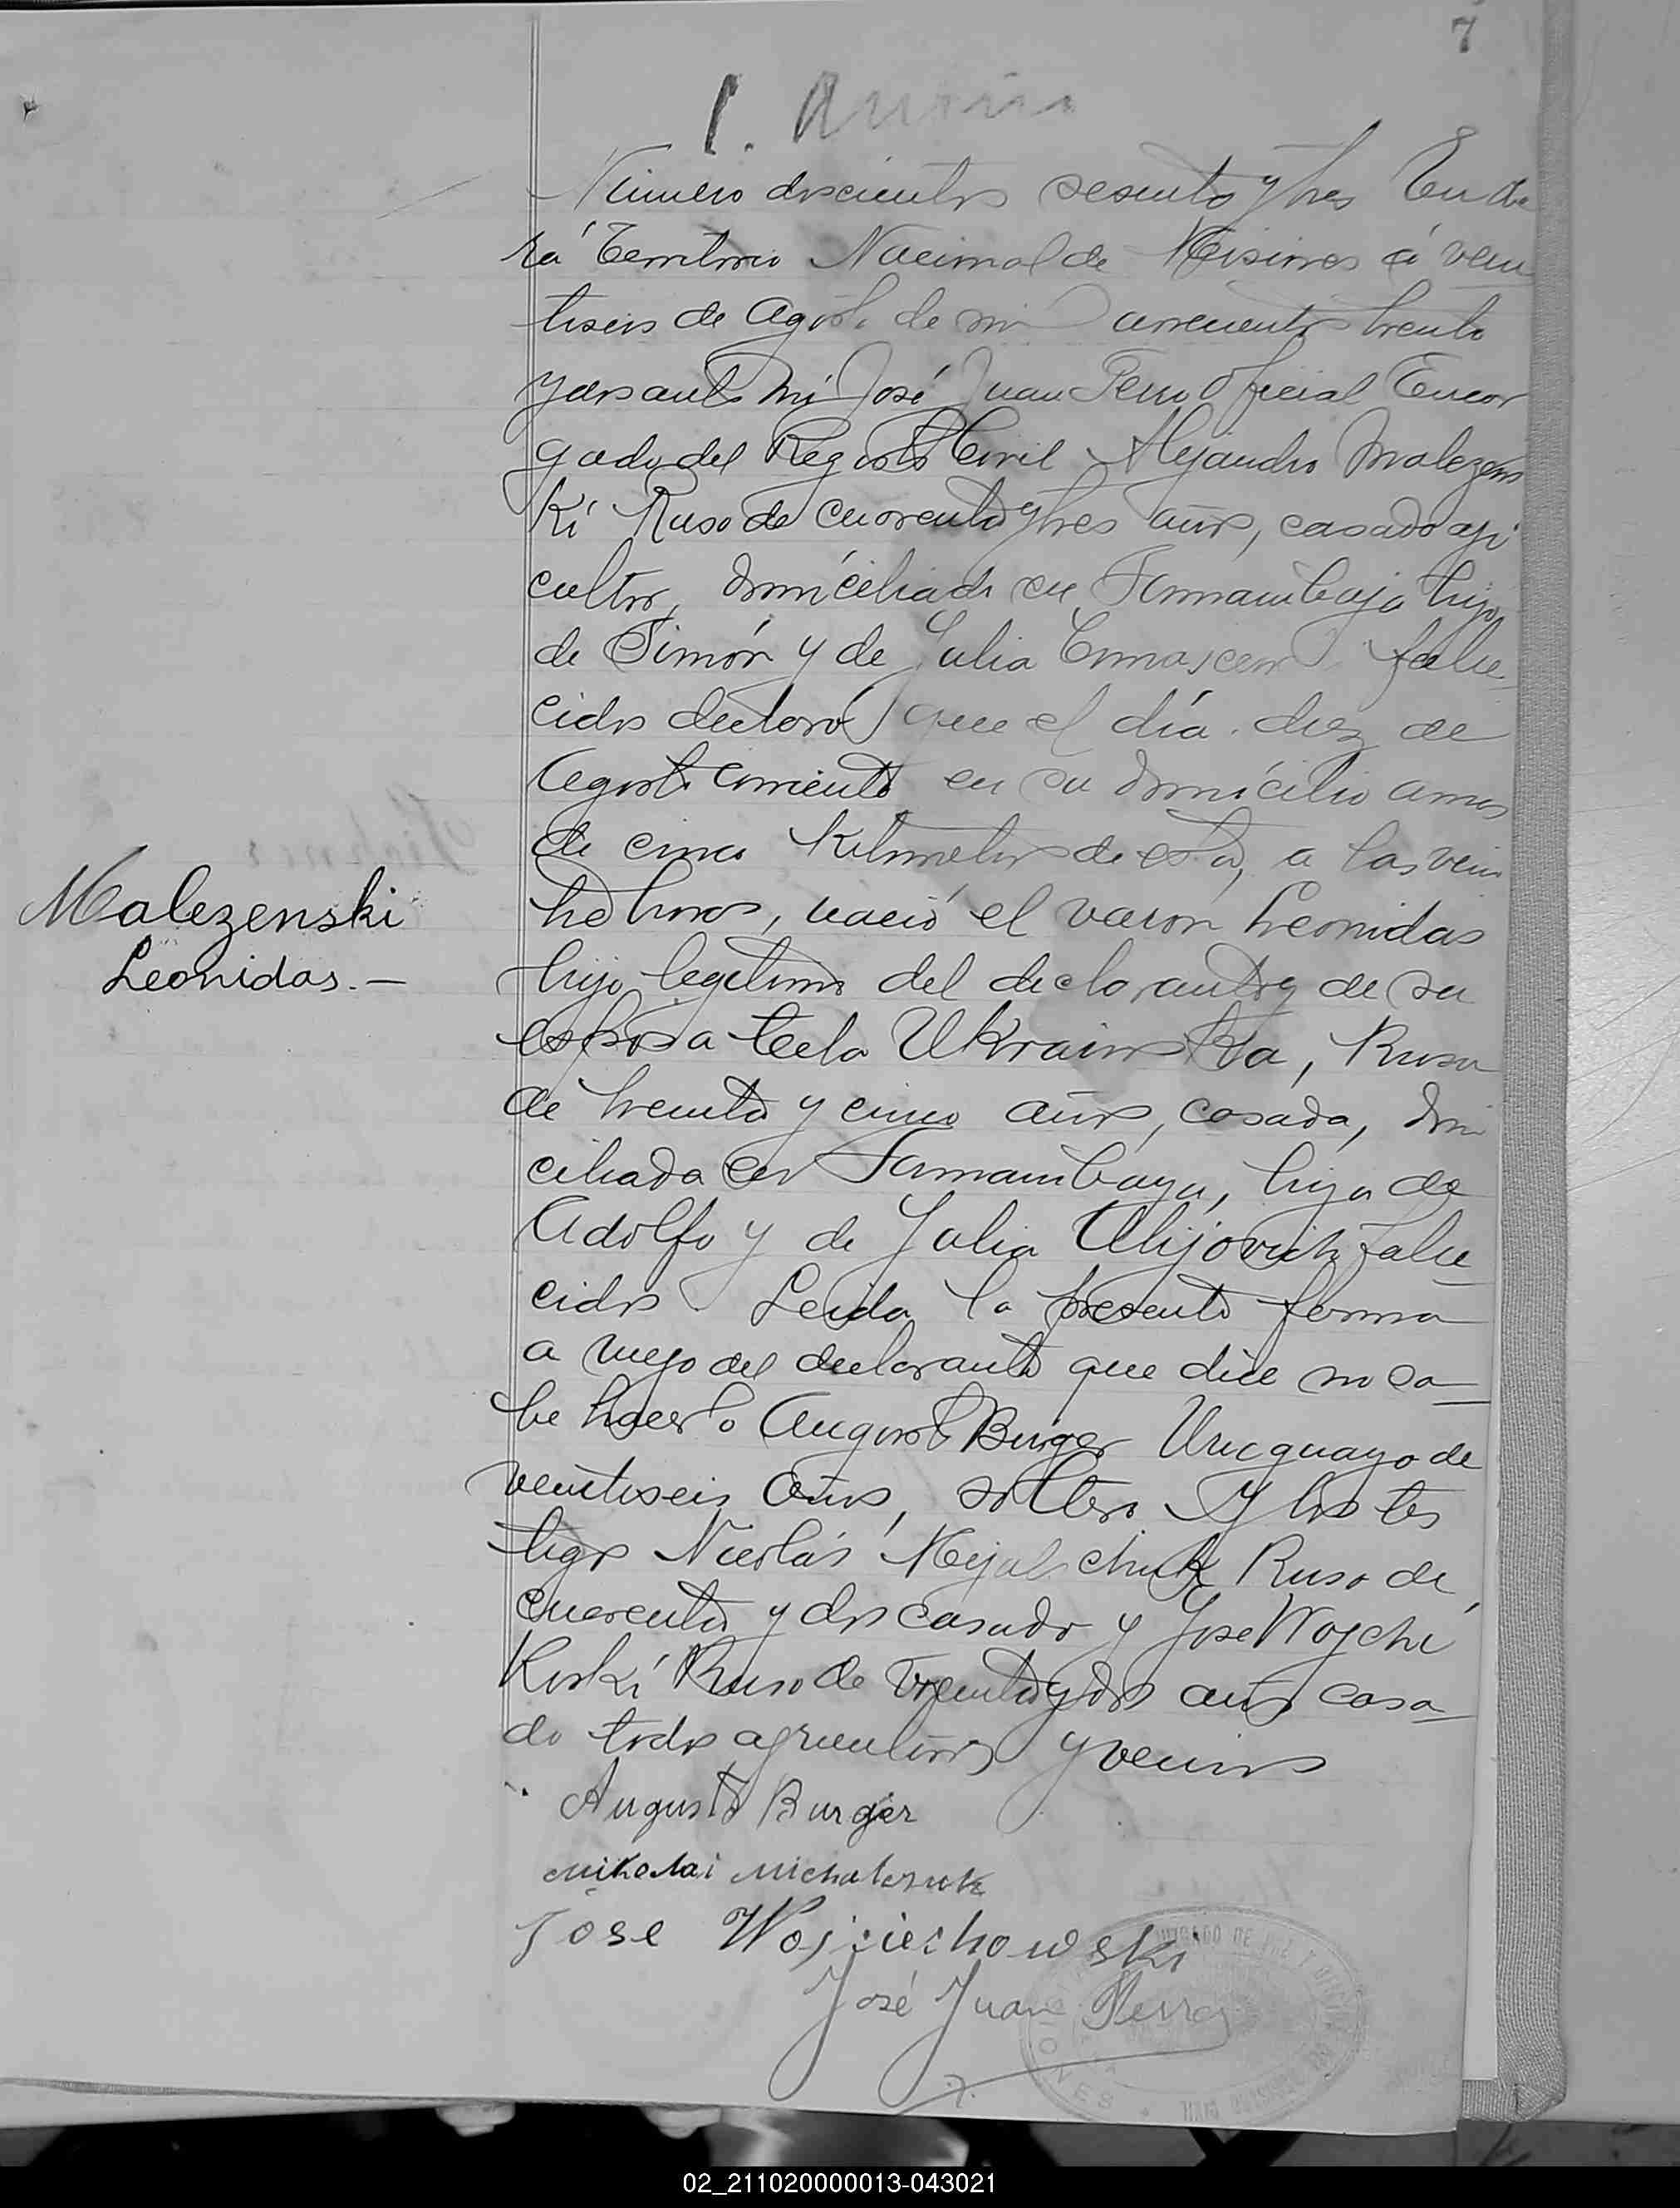 7
Número doscientos sesenta y tres En Ova
rá Territorio Nacional de Misiones á vein
tiseis de Agosto de mil novecientos treinta
y dos ante mí José Juan Ferro Oficial Encar
gado del Registro Civil Alejandro Malezens
ki Ruso de cuarenta y tres años, casado agri
cultor, domiciliado en hijo
de Simón y de Julia falle
cidos declaró que el día diez de
Agosto corriente en su domicilio a mas
de cinco kilometros de esta, a las vein
te horas, nació el varon Leonidas
hijo legitimo del declarante y de su
esposa Tecla Ukrainska, Rusa
de treinta y cinco años, casada, domi
ciliada en hija de
Adolfo y de Julia Alijovich falle
cidos Leida la presente firma
a ruego del declarante que dice no sa
be hacerlo Augusto Burger Uruguayo de
veintiseis años, soltero Y los tes
tigos Nicolás Mejalchuk Ruso de
cuarenta y dos casado y Jose Wojche
koski Ruso de treinta y dos años casa
do todos agricultores y vecinos
Malezenski
Leonidas. —
Augusto Burger
Mikolai Michalczuk
Jose Wojciechowski
José Juan Ferro
02_211020000013-043021